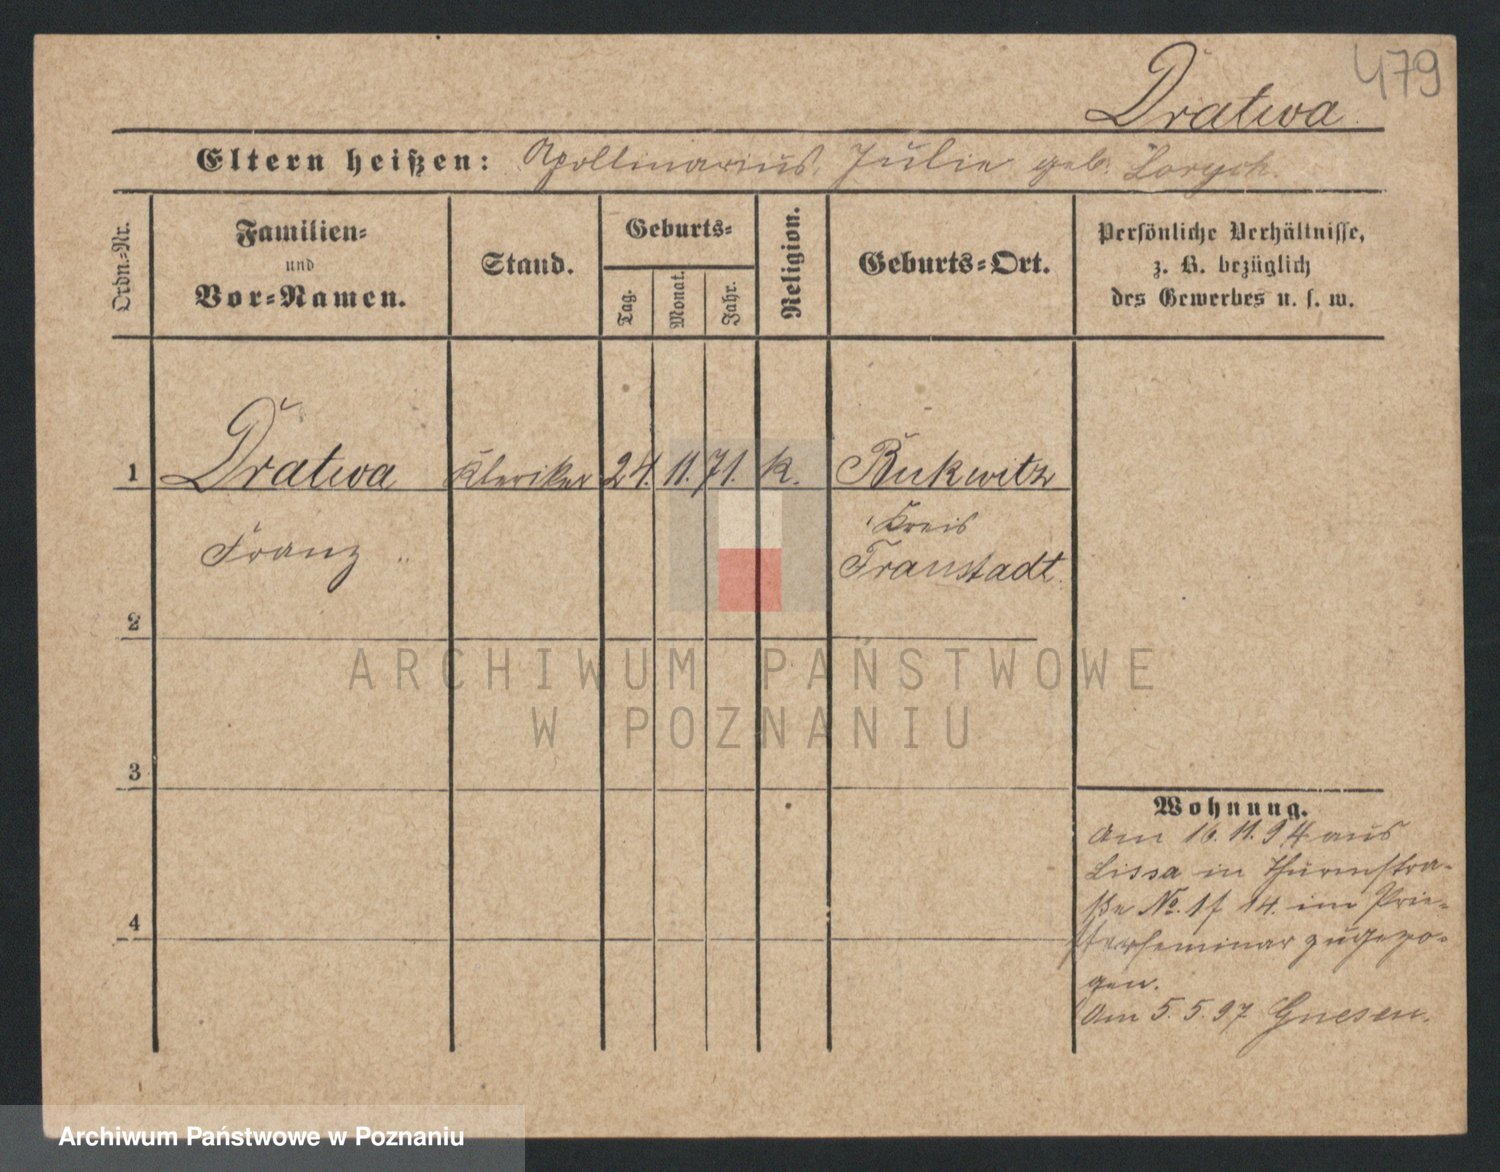 479
Dratwa
Eltern heißen: Apollinarius, Julie geb.
Ordn.-Nr.
Familien-
und
Vor-Namen.
Stand.
Geburts-
Tag.
Monat.
Jahr.
Religion.
Geburts-Ort.
Persönliche Verhältnisse,
z. B. bezüglich
des Gewerbes u. s. w.
1 Dratwa Kleriker 24. 11. 71. k. Bukwitz
Kreis
Franz Fraustadt
2
ARCHIWUM PAŃSTWOWE
W POZNANIU
3
Wohnung.
Am 16. 11. 94 aus
Lissa in Thurmstra-
ße No. 14. im Prie-
sterseminar zugezo-
gen.
4
Am 5. 5. 97 Gnesen.
Archiwum Państwowe w Poznaniu